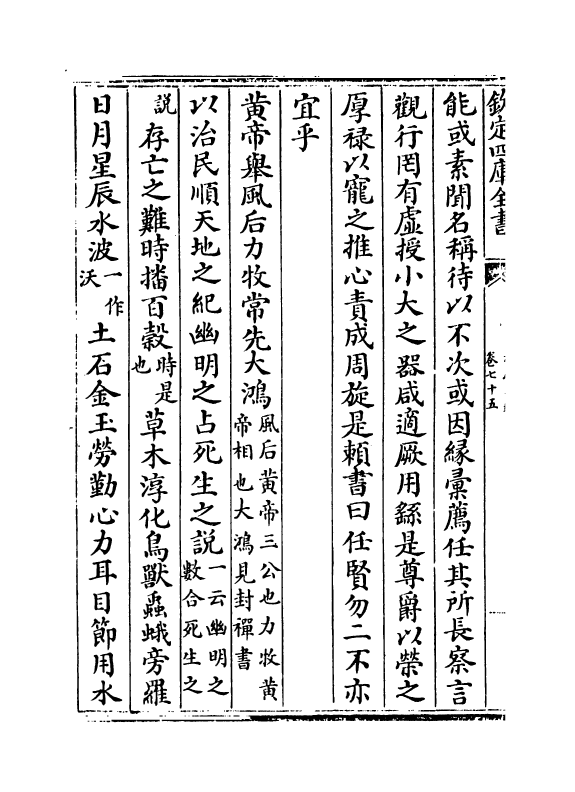 欽定四庫全書
卷七十五
能或素聞名稱待以不次或因緣彚薦任其所長察言
觀行罔有虛授小大之器咸適厥用繇是尊爵以榮之
厚祿以寵之推心責成周旋是賴書曰任賢勿二不亦
宜乎
黃帝舉風后力牧常先大鴻風后黃帝三公也力牧黃帝相也大鴻見封禪書
以治民順天地之紀幽明之占死生之説一云幽明之數合死生之
説存亡之難時播百穀時是也草木淳化鳥獸蟲蛾旁羅
日月星辰水波一作沃土石金玉勞勤心力耳目節用水